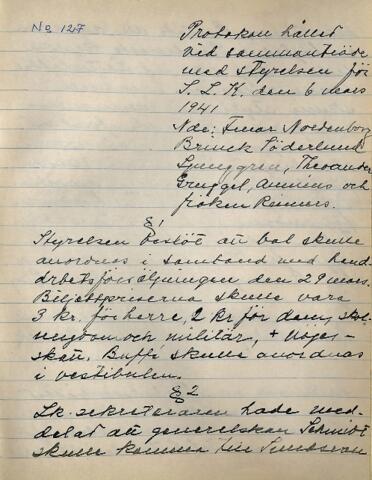 No 127
Protokoll hållet
vid sammanträde
med styrelsen för
S. L. K. den 6 mars
1941
Nde: Fruar Nordenborg
Brinck Söderlund
Ljunggren, Theander
Gruggel, och
fröken Renners.
§ 1
Styrelsen beslöt att bal skulle
anordnas i samband med hand-
arbetsförsäljningen den 29 mars.
Biljettpriserna skulle vara
3 kr. för herre, 2 kr för dam, skol-
ungdom och militär, + nöjes-
skatt. Buffé skulle anordnas
i vestibulen.
§ 2
Lk. sekreteraren hade med-
delat att generalskan Schmidt
skulle komma till